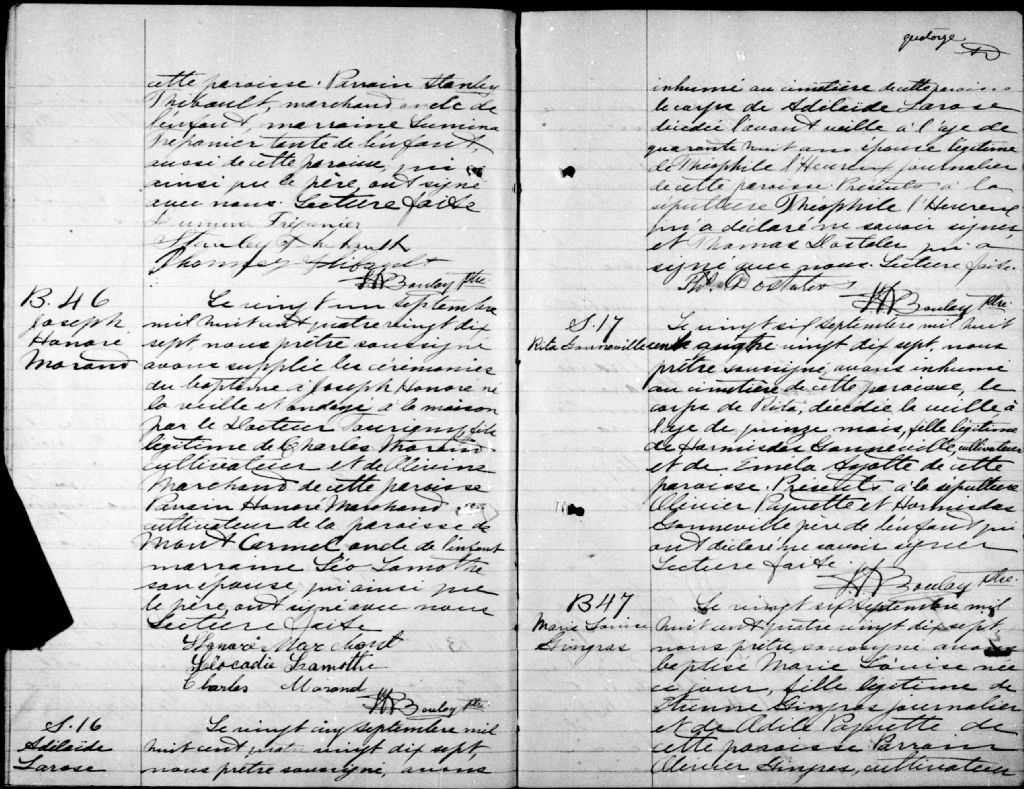 cette paroisse. Parrain Stanley
Thibault, marchand oncle de
l'enfant, marraine Lumina
Trépanier tante de l'enfant,
aussi de cette paroisse, qui
ainsi que le père, ont signé
avec nous. Lecture faite
Lumina Trépanier
Stanley Thibault
Thibault
Boulay Ptre
B. 46
Joseph
Honoré
Morand
Le vingt un septembre
mil huit cent quatre vingt dix
sept nous prêtre soussigné
avons supplié les cérémonies
du baptême à Joseph Honoré né
la veille et ondoyé à la maison
par le Docteur Tourigny, fils
légitime de Charles Morand
cultivateur et de Olivine
Marchand de cette paroisse
Parrain Honoré Marchand
cultivateur de la paroisse de
Mont Carmel oncle de l'enfant
marraine Léo Lamothe
son épouse, qui ainsi que
le père, ont signé avec nous
Lecture faite
Honoré Marchand
Léocadie Lamothe
Charles Morand
Boulay Ptre
S. 16
Adélaide
Larose
Le vingt cinq septembre mil
huit cent quatre vingt dix sept,
nous prêtre soussigné, avons
inhumé au cimetière de cette paroisse
le corps de Adélaide Larose
décédée l'avant veille à l'âge de
quarante huit ans épouse légitime
de Théophile l'Heureux journalier
de cette paroisse. Présents à la
sépulture Théophile l'Heureux
qui a déclaré ne savoir signer
et Thomas Dostaler qui a
signé avec nous. Lecture faite.
Ths. Dostaler
Boulay Ptre
S. 17
Rita Lonneville
Le vingt six septembre mil huit
cent quatre vingt dix sept, nous
prêtre soussigné, avons inhumé
au cimetière de cette paroisse, le
corps de Rita, décédée la veille à
l'âge de quinze mois, fille légitime
de Hormisdas Lonneville, cultivateur
et de Ayotte de cette
paroisse. Présents à la sépulture
Olivier Paquette et Hormisdas
Lonneville père de l'enfant qui
ont déclaré ne savoir signer
Lecture faite.
Boulay Ptre
B 47
Marie Louise
Gingras
Le vingt six septembre mil
huit cent quatre vingt dix sept
nous prêtre, soussigné avons
baptisé Marie Louise née
ce jour, fille légitime de
Etienne Gingras journalier
et de Odile Paquette de
cette paroisse Parrain
Olivier Gingras, cultivateur